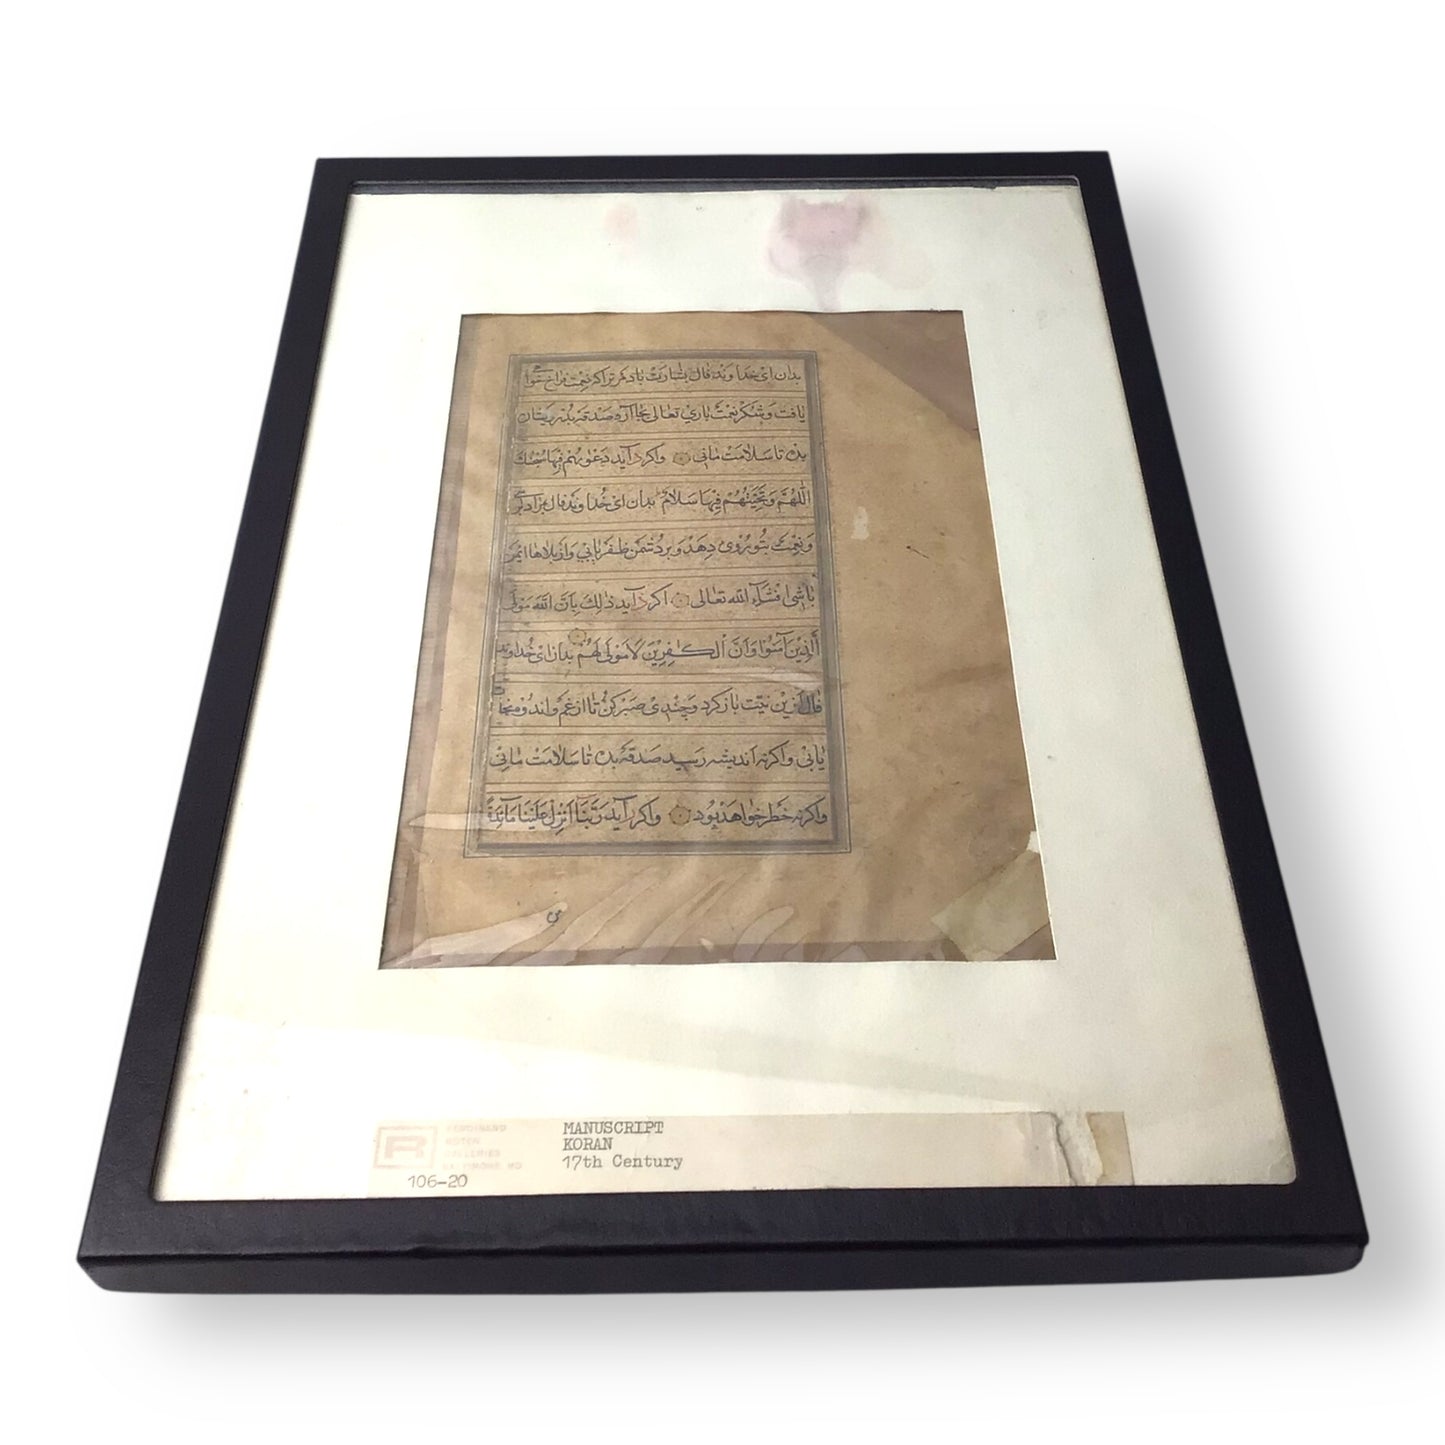 بدان ای خداوند فال بشارت باد مر ترا که نعمت فراخ خواهی
یافت و شکر نعمت باری تعالی بجا آر و صدقه بدرویشان
بده تا سلامت مانی واکر د آید دعویهم فیها سبحنك
اللهم وتحیتهم فیها سلام بدان ای خداوند فال
و نعمت بتو روی دهد و بر دشمن ظفر یابی و از بلاها ایمن
باشی انشاء الله تعالی اکر د آید ذلك بان الله مولی
الذین آمنوا وان الكفرین لا مولی لهم بدان ای خداوند
فال ازین نیت باز کرد و چندی صبر کن تا از غم و اندوه نجات
یابی واکر نه اندیشه رسید صدقه بده تا سلامت مانی
واکر نه خطر خواهد بود واکر د آید ربنا انزل علینا مآئدة
من
R
FERDINAND
ROTEN
GALLERIES
BALTIMORE MD
106-20
MANUSCRIPT
KORAN
17th Century